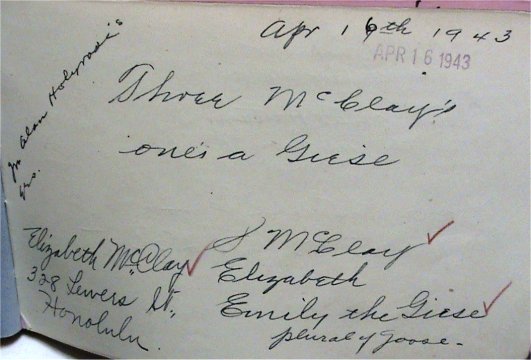 Apr 16th 1943
APR 16 1943
Three McClay's
one's a Giese
Alan
yrs.
Elizabeth McClay
328 Lewers St.,
Honolulu.
S McClay
Elizabeth
Emily the Giese
plural of goose.